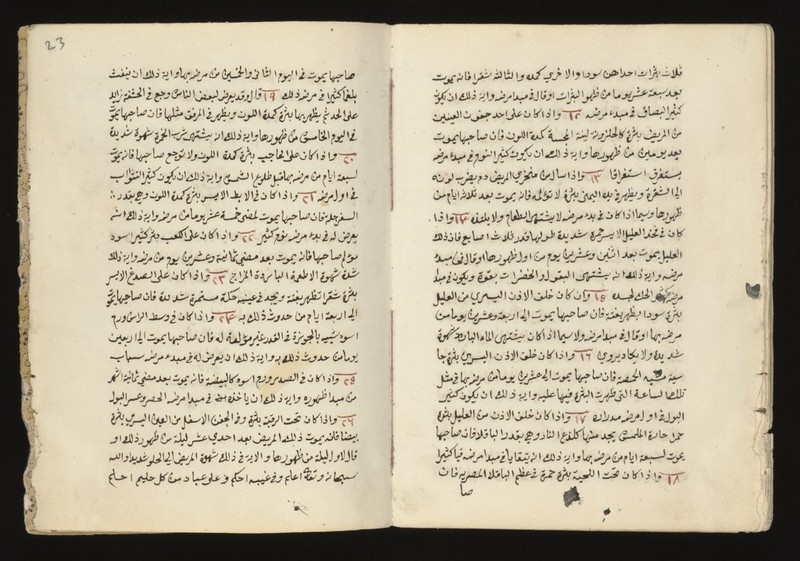 ثلاث بثرات احداهن سودا والاخري كمده والثالثه شقرا فانه يموت
بعد سبعة عشر يوما من ظهور البثرات اوقال في مبدا مرضه واية ذلك ان يكون
كثير البصاق في مبدء مرضه ١٢ واذا كان علي احد جفون العينين
من المريض بثرة كالجلوزة لينة المجسة كمدة اللون فان صاحبها يموت
بعد يومين من ظهورها واية ذلك ان يكون كثير النوم في مبدء مرضه
يستغرق استغراقا ١٣ واذا سال من منخري المريض دم يضرب لونه
الي الشقرة ويظهر في يده اليمني بثرة لا تؤلمه فانه يموت بعد ثلاثة ايام من
ظهورها وسيما اذا كان في بدء مرضه لا يشتهي الطعام ولا يلتفه ١٤ واذا
كان في فخذ العليل الايسر حمرة شديدة طولها قدر ثلاث اصابع فان ذلك
العليل يموت بعد اثنين وعشرين يوم من اول ظهورها اوقال في مبدا
مرضه واية ذلك انه يشتهي البقول والخضرات بقوة ويكون في مبدء
مرضه كثير الحك لجسده ١٥ وان كان خلف الاذن اليسري من العليل
بثرة سودا يظهر بغتة فان صاحبها يموت الي اربعة وعشرين يوما من
مرضه بها اوقال في مبدا مرضه ولا سيما اذا كان يشتهي الماء البارد شهوة
شديدة ولا يكاد يروي ١٦ واذا كان خلف الاذن اليسري بثرة جا
سية شبيه الحمصة فان صاحبها يموت الي عشرين يوما من مرضه بها في مثل
تلك الساعة التي ظهرت البثرة فيها عليه واية ذلك ان يكون كثير
البول في اول مرضه مدرارة ١٧ واذا كان خلف الاذن من العليل بثرة
حمرا حارة الملمس يجد منها كلذع النار وهي بقدر الباقلا فان صاحبها
يموت لسبعة ايام من مرضه بها واية ذلك انه يتقيا في مبدا مرضه قيا كثيرا
١٨ واذا كان تحت اللحية بثرة حمرة في عظم الباقلا المصريه فان
صا
23
صاحبها يموت في اليوم الثاني والخمسين من مرضه بها واية ذلك ان ينفث
بلغما كثيرا في مرضه ذلك ١٩ قال وقد يعرض لبعض الناس وجع في الحنجره زايد
علي الخدع يظهر بها بثرة كمدة اللون ويظهر في المرفق مثلها فان صاحبها يموت
في اليوم الخامس من ظهورها واية ذلك انه يشتهي شرب الخمرة شهوة شديدة
٢٠ واذا كان علي الحاجب بثرة كمدة اللون ولا توجع صاحبها فانه يموت
لسبعة ايام من مرضه بها قبل طلوع الشمس واية ذلك ان يكون كثير التثاوب
في اول مرضه ٢١ واذا كان في الابط الايسر بثرة كمدة اللون وهي بقدر
السفرجلة فان صاحبها يموت لمضي خمسة عشر يوما من مرضه واية ذلك انه
يعرض له في بدء مرضه نوم كثير ٢٢ واذا كان علي الكعب بثر كثير اسود
مولم صاحبها فانه يموت بعد مضي ثمانية وعشرين يوم من مرضه واية ذلك
شدة شهوة الاطعمة الباردة المزاج ٢٣ واذا كان علي الصدغ الايسر
بثرة شقرا تظهر بغتة ويجد في عينيه حكة مستمرة شديدة فان صاحبها يموت
الي اربعة ايام من حدوث ذلك به ٢٤ واذا كان في وسط الراس ورم
اسود شبيه بالجوزة في القدر غير مؤلمة له فان صاحبها يموت الي اربعين
يوما من حدوث ذلك به واية ذلك ان يعرض له في مبدء مرضه سبات
٢٥ واذا كان في الصدر ورم اسود كالبيضة فانه يموت بعد مضي ثمانية اشهر
من مبدا ظهوره واية ذلك ان ياخذه في مبدا مرضه الحصر وعسر البول
٢٦ واذا كان تحت الرقبة بثرة وفي الجفن الاسفل من العين اليسري بثرة
بيضا فانه يموت ذلك المريض بعد احدي عشر ليلة من ظهور ذلك او
قال لاول ليلة من ظهورها والاية في ذلك شهوة المريض الي الحلو شديدا والله
سبحانه وتعالي اعلم وفي غيبه احكم وعلي عباده من كل حليم احلم